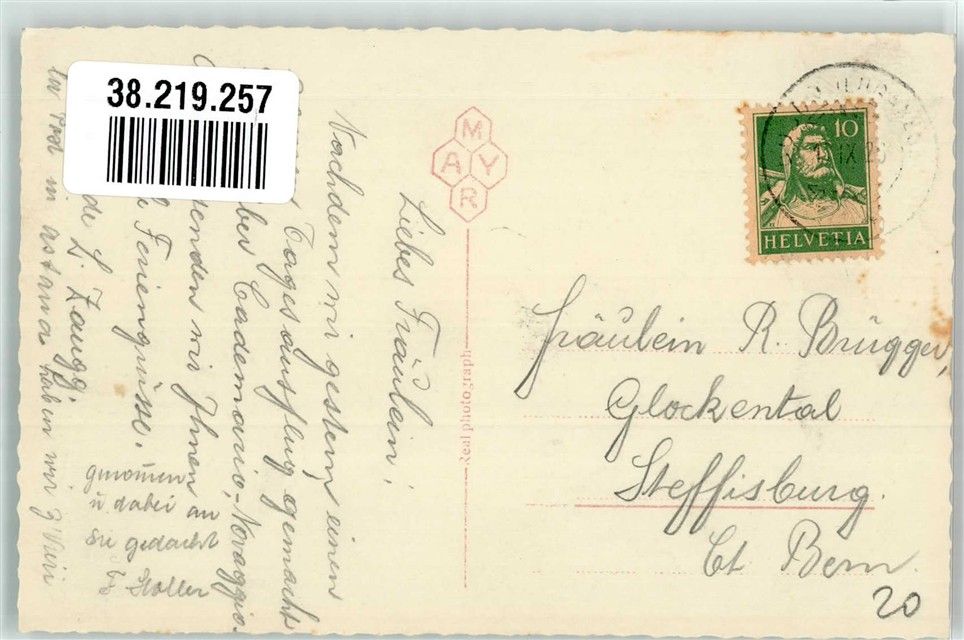 38.219.257
MAYR
Liebes Fräulein!
Nachdem wir gestern einen
Tagesausflug gemacht
über Cademario, Novaggio
senden wir Ihnen
Feriengrüsse.
L. Zaugg.
in astand haben wir z'Vieri
genommen
u dabei an
Sie gedacht
Real photograph
10
HELVETIA
IX
Fräulein R. Brügger,
Glockental
Steffisburg.
Ct Bern.
20